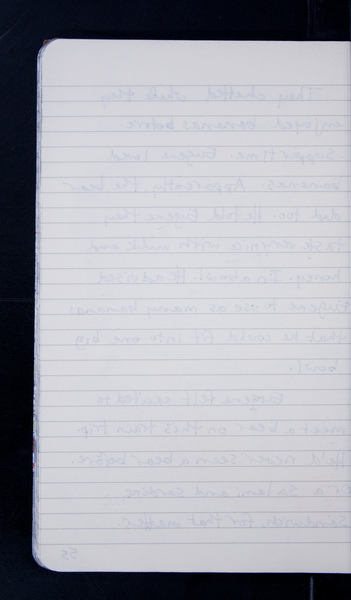 They chatted while they
enjoyed bananas before
suppertime. Eugene loved
bananas. Apparently the bear
did too. He told Eugene they
taste very nice with milk and
honey. In a bowl. He advised
Eugene to use as many bananas
that he could fit into one big
bowl.
Eugene felt elated to
meet a bear on this train trip.
He'd never seen a bear before.
Or a salami and sardine
sandwich for that matter.
55